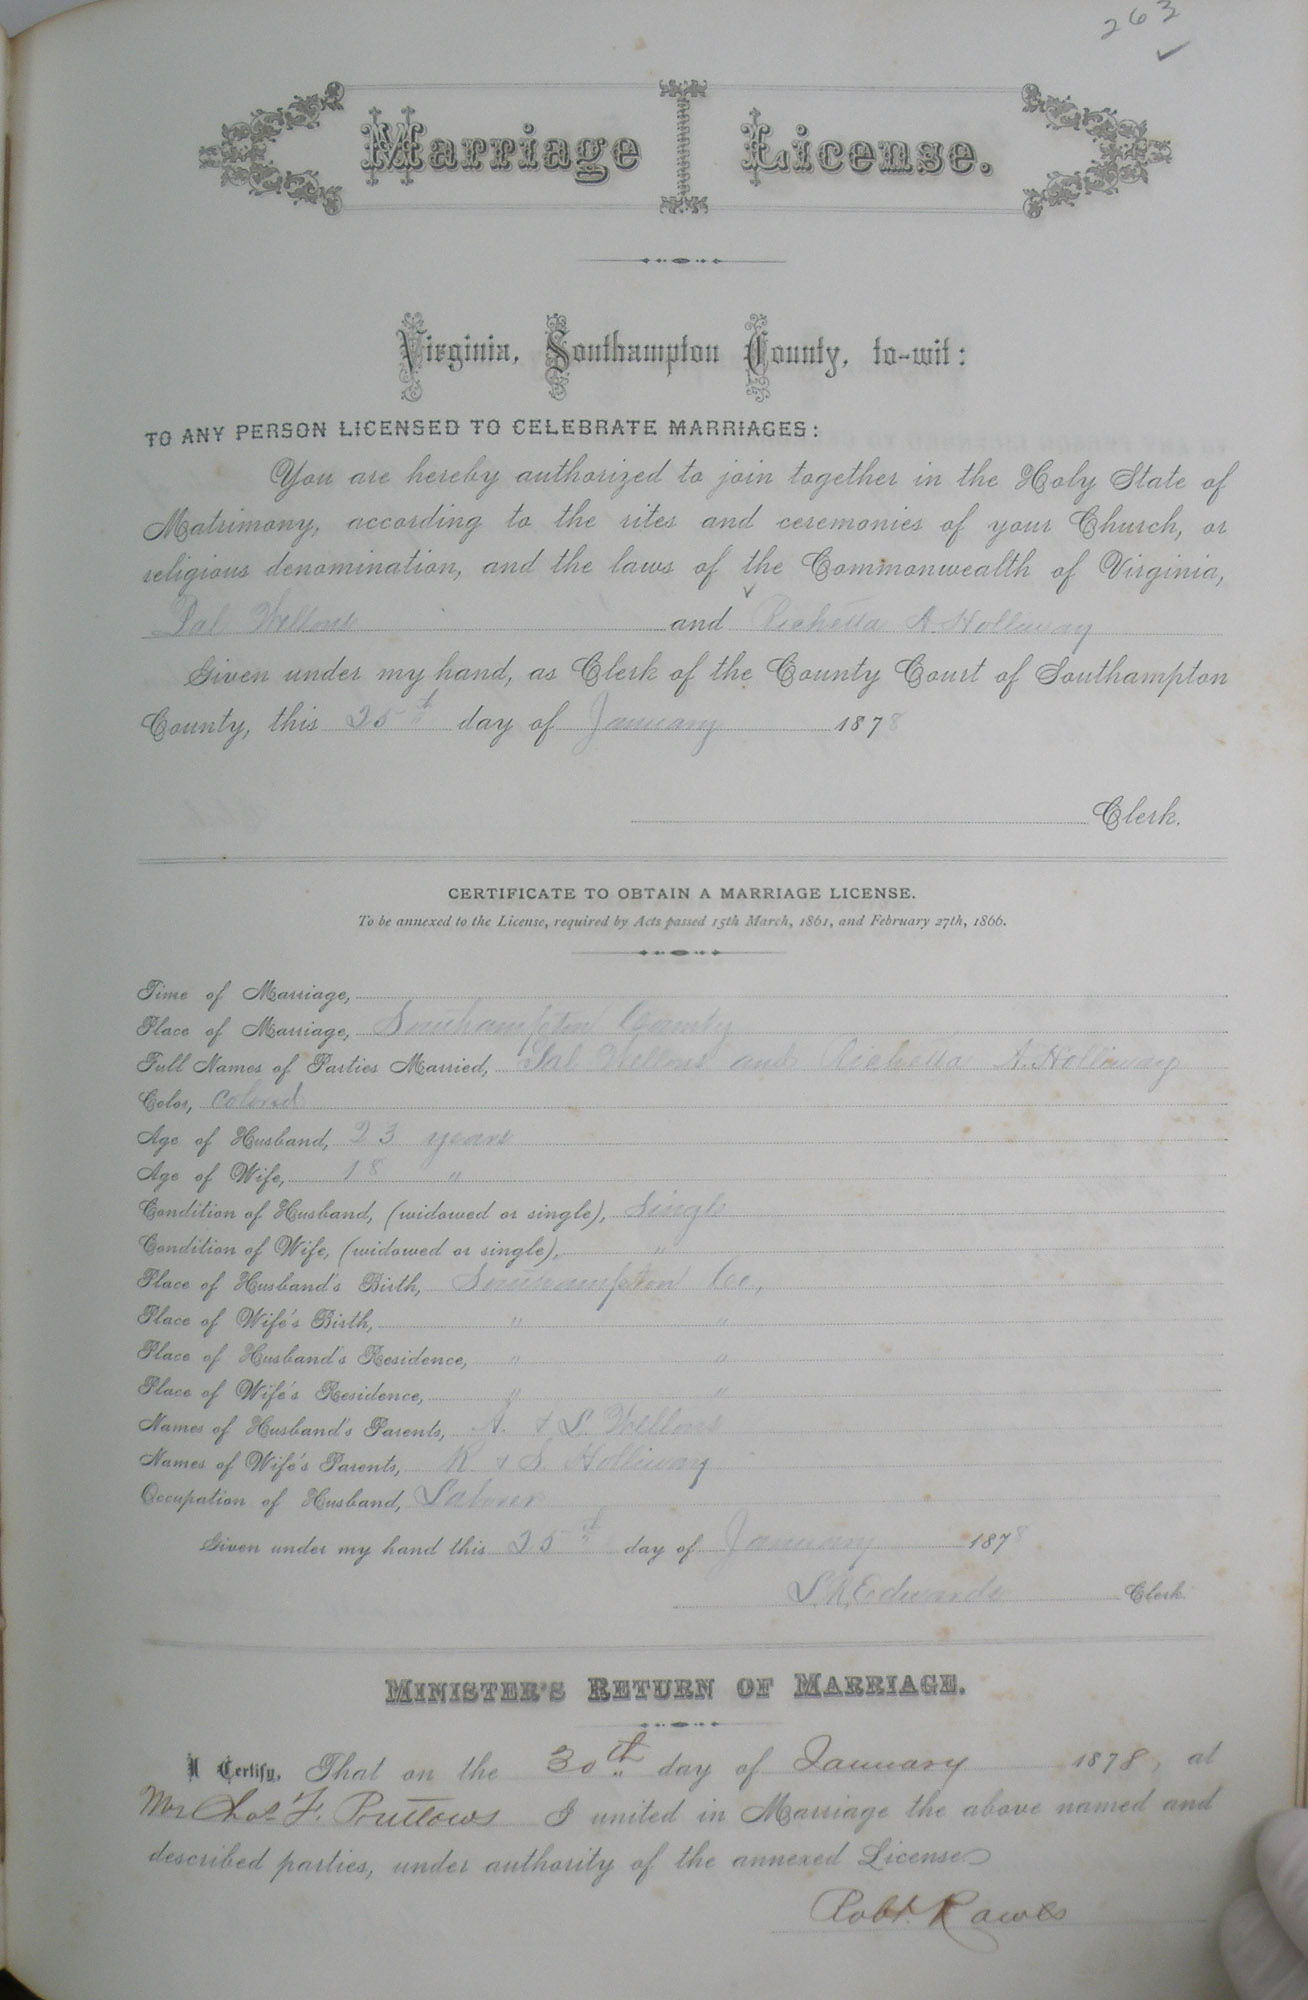 263
Marriage License.
Virginia, Southampton County, to-wit:
TO ANY PERSON LICENSED TO CELEBRATE MARRIAGES:
You are hereby authorized to join together in the Holy State of
Matrimony, according to the rites and ceremonies of your Church, or
religious denomination, and the laws of the Commonwealth of Virginia,
Wellons and Richetta A. Holloway
Given under my hand, as Clerk of the County Court of Southampton
County, this 25th day of January 1878
Clerk.
CERTIFICATE TO OBTAIN A MARRIAGE LICENSE.
To be annexed to the License, required by Acts passed 15th March, 1861, and February 27th, 1866.
Time of Marriage,
Place of Marriage, Southampton County
Full Names of Parties Married, Wellons and Richetta A. Holloway
Color, Colored
Age of Husband, 23 years
Age of Wife, 18 "
Condition of Husband, (widowed or single), Single
Condition of Wife, (widowed or single), "
Place of Husband's Birth, Southampton Co.,
Place of Wife's Birth, " "
Place of Husband's Residence, " "
Place of Wife's Residence, " "
Names of Husband's Parents, A. & L. Wellons
Names of Wife's Parents, R. & S. Holloway
Occupation of Husband, Laborer
Given under my hand this 25th day of January 1878
L. R. Edwards Clerk.
MINISTER'S RETURN OF MARRIAGE.
I Certify, That on the 30th day of January 1878, at
Mr Chas F. I united in Marriage the above named and
described parties, under authority of the annexed License.
Robt. Rawls